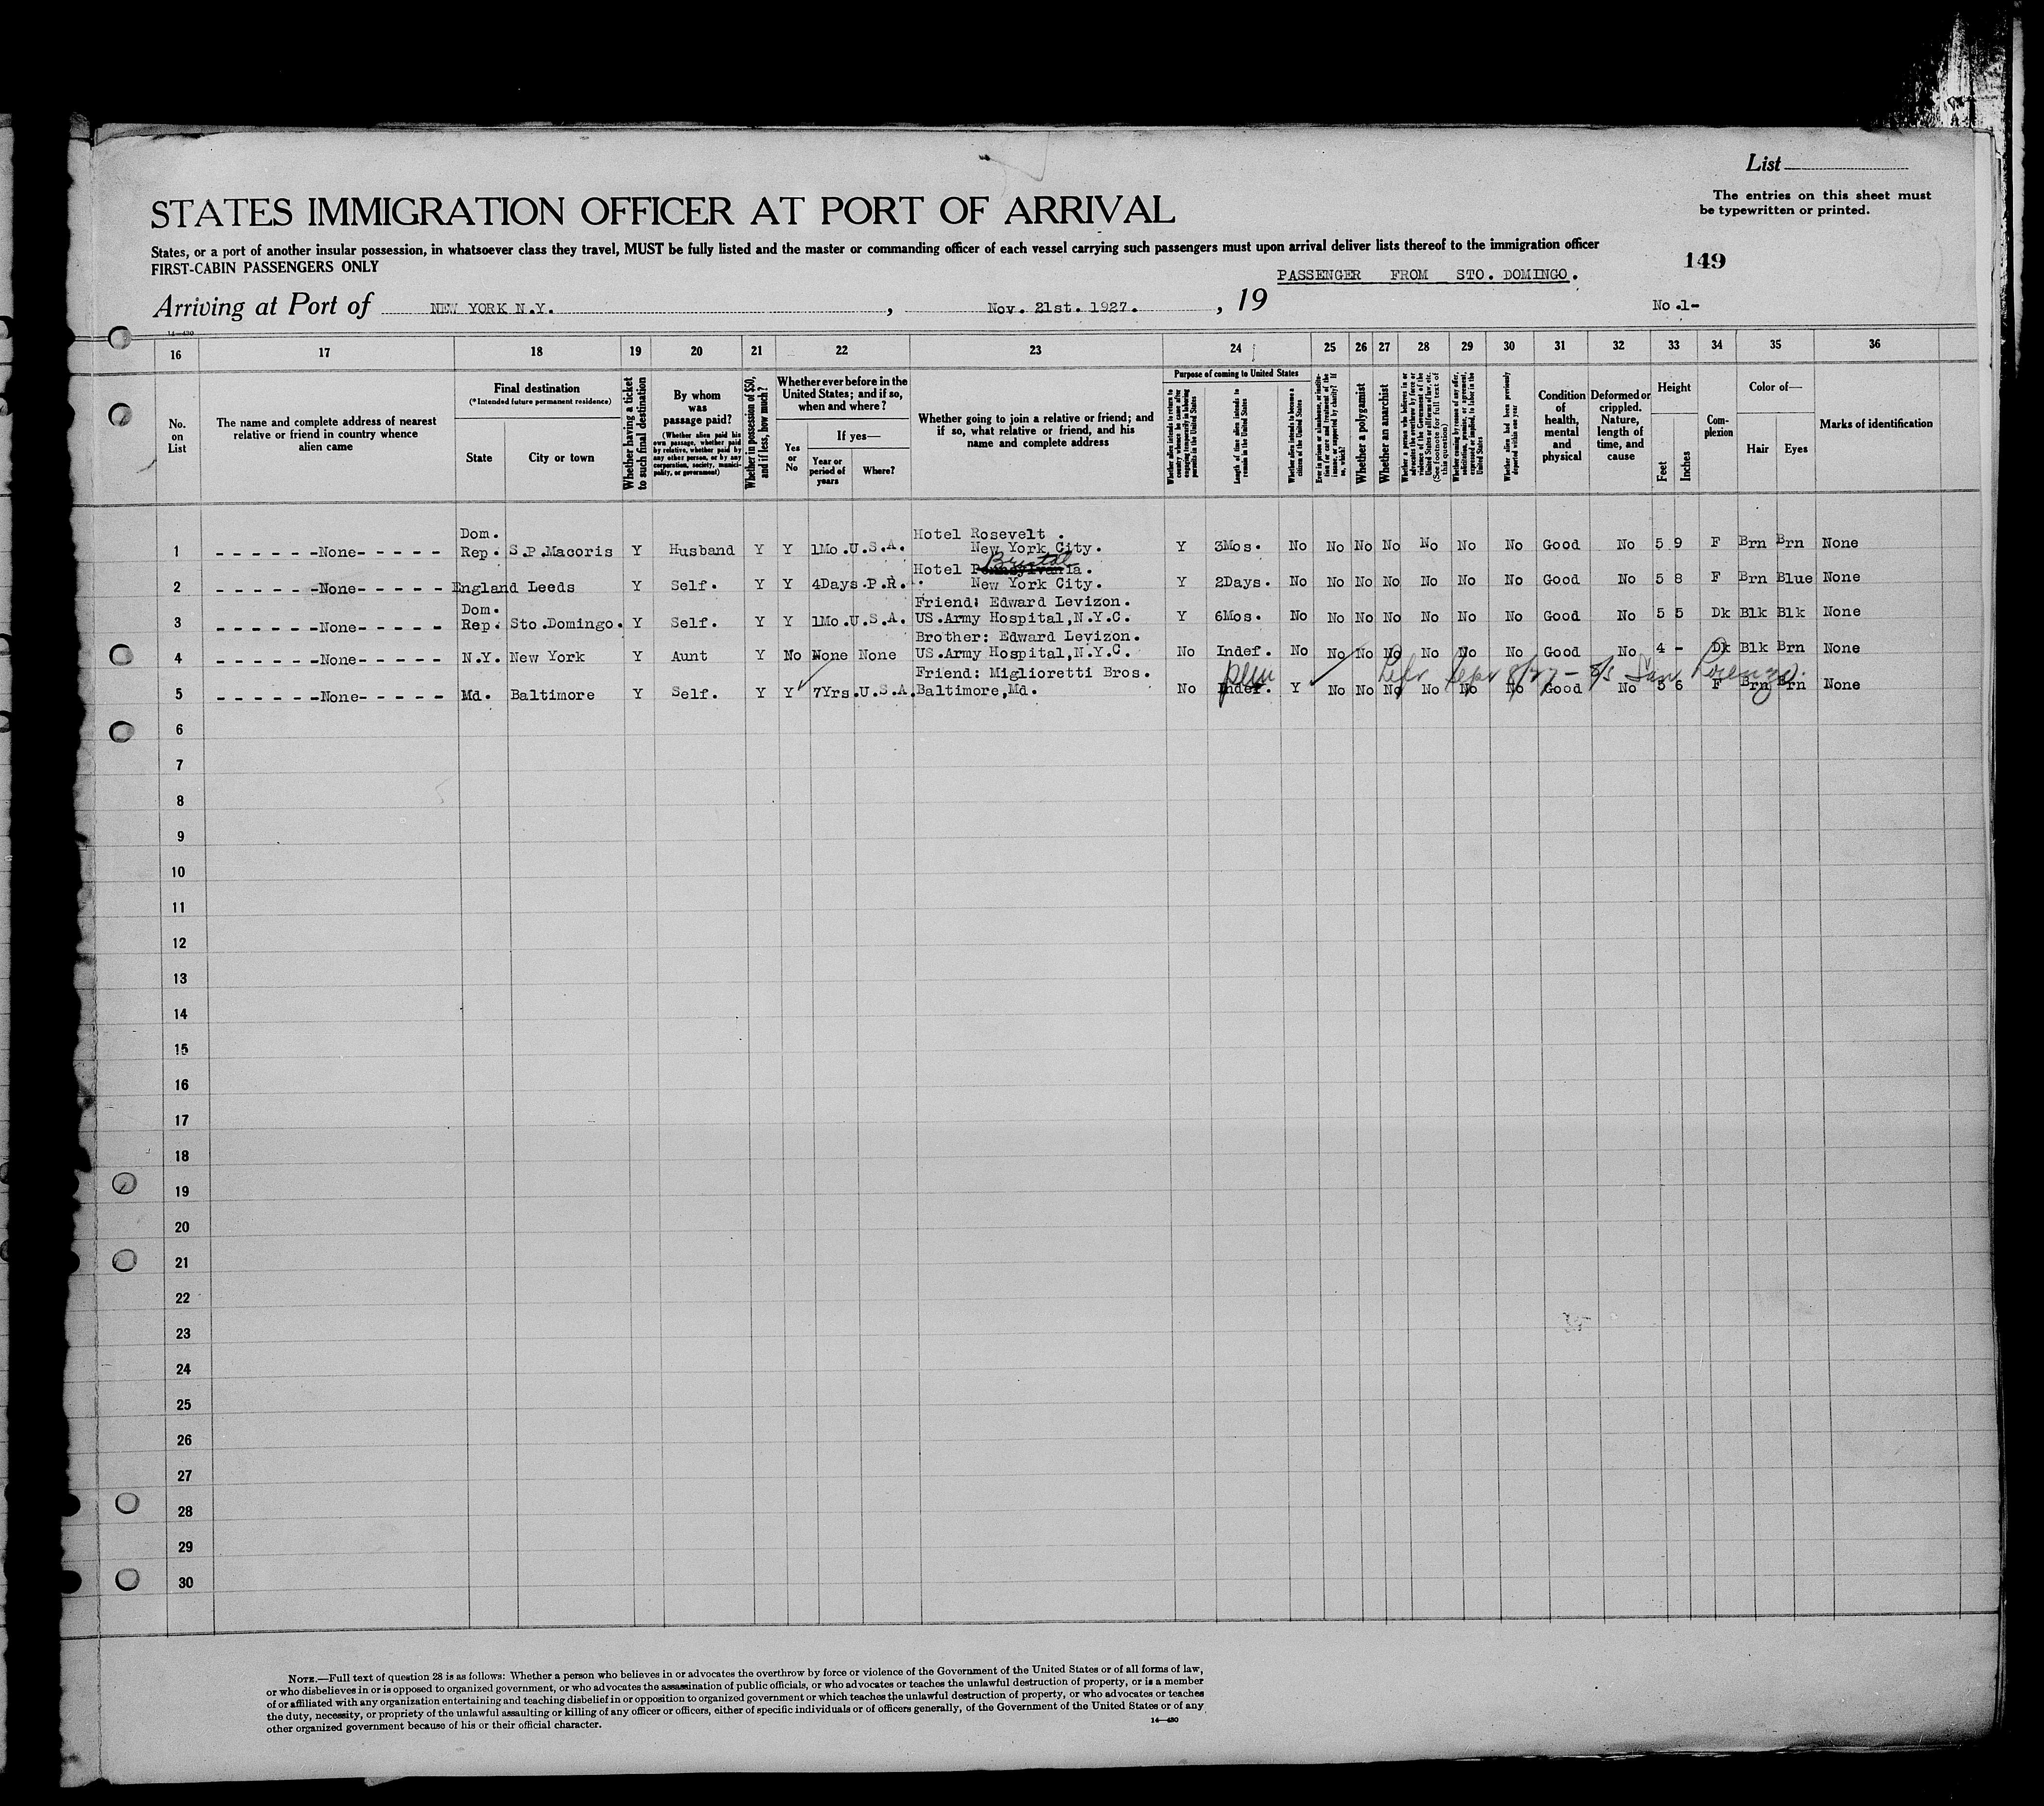 List
The entries on this sheet must
be typewritten or printed.
STATES IMMIGRATION OFFICER AT PORT OF ARRIVAL
States, or a port of another insular possession, in whatsoever class they travel, MUST be fully listed and the master or commanding officer of each vessel carrying such passengers must upon arrival deliver lists thereof to the immigration officer
FIRST-CABIN PASSENGERS ONLY
149
PASSENGER FROM STO. DOMINGO.
Arriving at Port of NEW YORK N.Y. , Nov. 21st. 1927. , 19
No.1-
14—430
16 17 18 19 20 21 22 23 24 25 26 27 28 29 30 31 32 33 34 35 36
No. on List
The name and complete address of nearest relative or friend in country whence alien came
Final destination
(*Intended future permanent residence)
State
City or town
Whether having a ticket to such final destination
By whom was passage paid?
(Whether alien paid his own passage, whether paid by relative, whether paid by any other person, or by any corporation, society, municipality, or government)
Whether in possession of $50, and if less, how much?
Whether ever before in the United States; and if so, when and where?
Yes or No
If yes—
Year or period of years
Where?
Whether going to join a relative or friend; and if so, what relative or friend, and his name and complete address
Purpose of coming to United States
Whether alien intends to return to country whence he came after engaging temporarily in laboring pursuits in the United States
Length of time alien intends to remain in the United States
Whether alien intends to become a citizen of the United States
Ever in prison or almshouse, or institution for care and treatment of the insane, or supported by charity? If so, which?
Whether a polygamist
Whether an anarchist
Whether a person who believes in or advocates the overthrow by force or violence of the Government of the United States or all forms of law, etc. (See footnote for full text of this question)
Whether coming by reason of any offer, solicitation, promise, or agreement, expressed or implied, to labor in the United States
Whether alien had been previously deported within one year
Condition of health, mental and physical
Deformed or crippled. Nature, length of time, and cause
Height
Feet
Inches
Complexion
Color of—
Hair
Eyes
Marks of identification
1 - - - - - -None- - - - - Dom. Rep. S.P.Macoris Y Husband Y Y 1Mo. U.S.A. Hotel Rosevelt . New York City. Y 3Mos. No No No No No No No Good No 5 9 F Brn Brn None
2 - - - - - -None- - - - - England Leeds Y Self. Y Y 4Days P.R. Hotel Pennsylvania. Bristol New York City. Y 2Days. No No No No No No No Good No 5 8 F Brn Blue None
3 - - - - - -None- - - - - Dom. Rep. Sto.Domingo. Y Self. Y Y 1Mo. U.S.A. Friend: Edward Levizon. US.Army Hospital,N.Y.C. Y 6Mos. No No No No No No No Good No 5 5 Dk Blk Blk None
4 - - - - - -None- - - - - N.Y. New York Y Aunt Y No None None Brother: Edward Levizon. US.Army Hospital,N.Y.C. No Indef. No No No No No No No Good No 4 - Dk Blk Brn None
5 - - - - - -None- - - - - Md. Baltimore Y Self. Y Y 7Yrs. U.S.A. Friend: Miglioretti Bros. Baltimore,Md. No Indef. Y No No No No No No Good No 5 6 F Brn Brn None
8/27 - S/S San Lorenzo.
6
7
8
9
10
11
12
13
14
15
16
17
18
19
20
21
22
23
24
25
26
27
28
29
30
NOTE.—Full text of question 28 is as follows: Whether a person who believes in or advocates the overthrow by force or violence of the Government of the United States or of all forms of law,
or who disbelieves in or is opposed to organized government, or who advocates the assassination of public officials, or who advocates or teaches the unlawful destruction of property, or is a member
of or affiliated with any organization entertaining and teaching disbelief in or opposition to organized government or which teaches the unlawful destruction of property, or who advocates or teaches
the duty, necessity, or propriety of the unlawful assaulting or killing of any officer or officers, either of specific individuals or of officers generally, of the Government of the United States or of any
other organized government because of his or their official character.
14—430